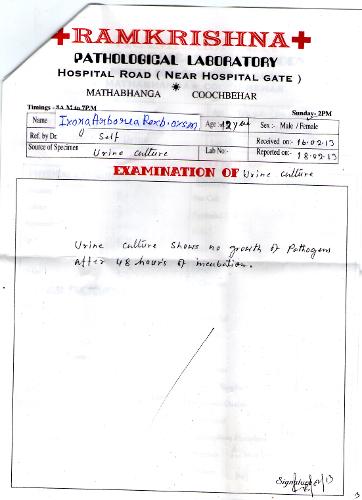 RAMKRISHNA
PATHOLOGICAL LABORATORY
HOSPITAL ROAD ( NEAR HOSPITAL GATE )
MATHABHANGA * COOCHBEHAR
Timings - 8A.M to 7P.M Sunday- 2PM
Name Ixora Arborea Roxb. Age :- 12 year Sex :- Male / Female
Ref. by Dr. Self Received on:- 16.02.13
Source of Specimen Urine culture Lab No:- Reported on:- 18.02.13
EXAMINATION OF Urine culture
Urine culture shows no growth of Pathogens
after 48 hours of incubation.
Signature